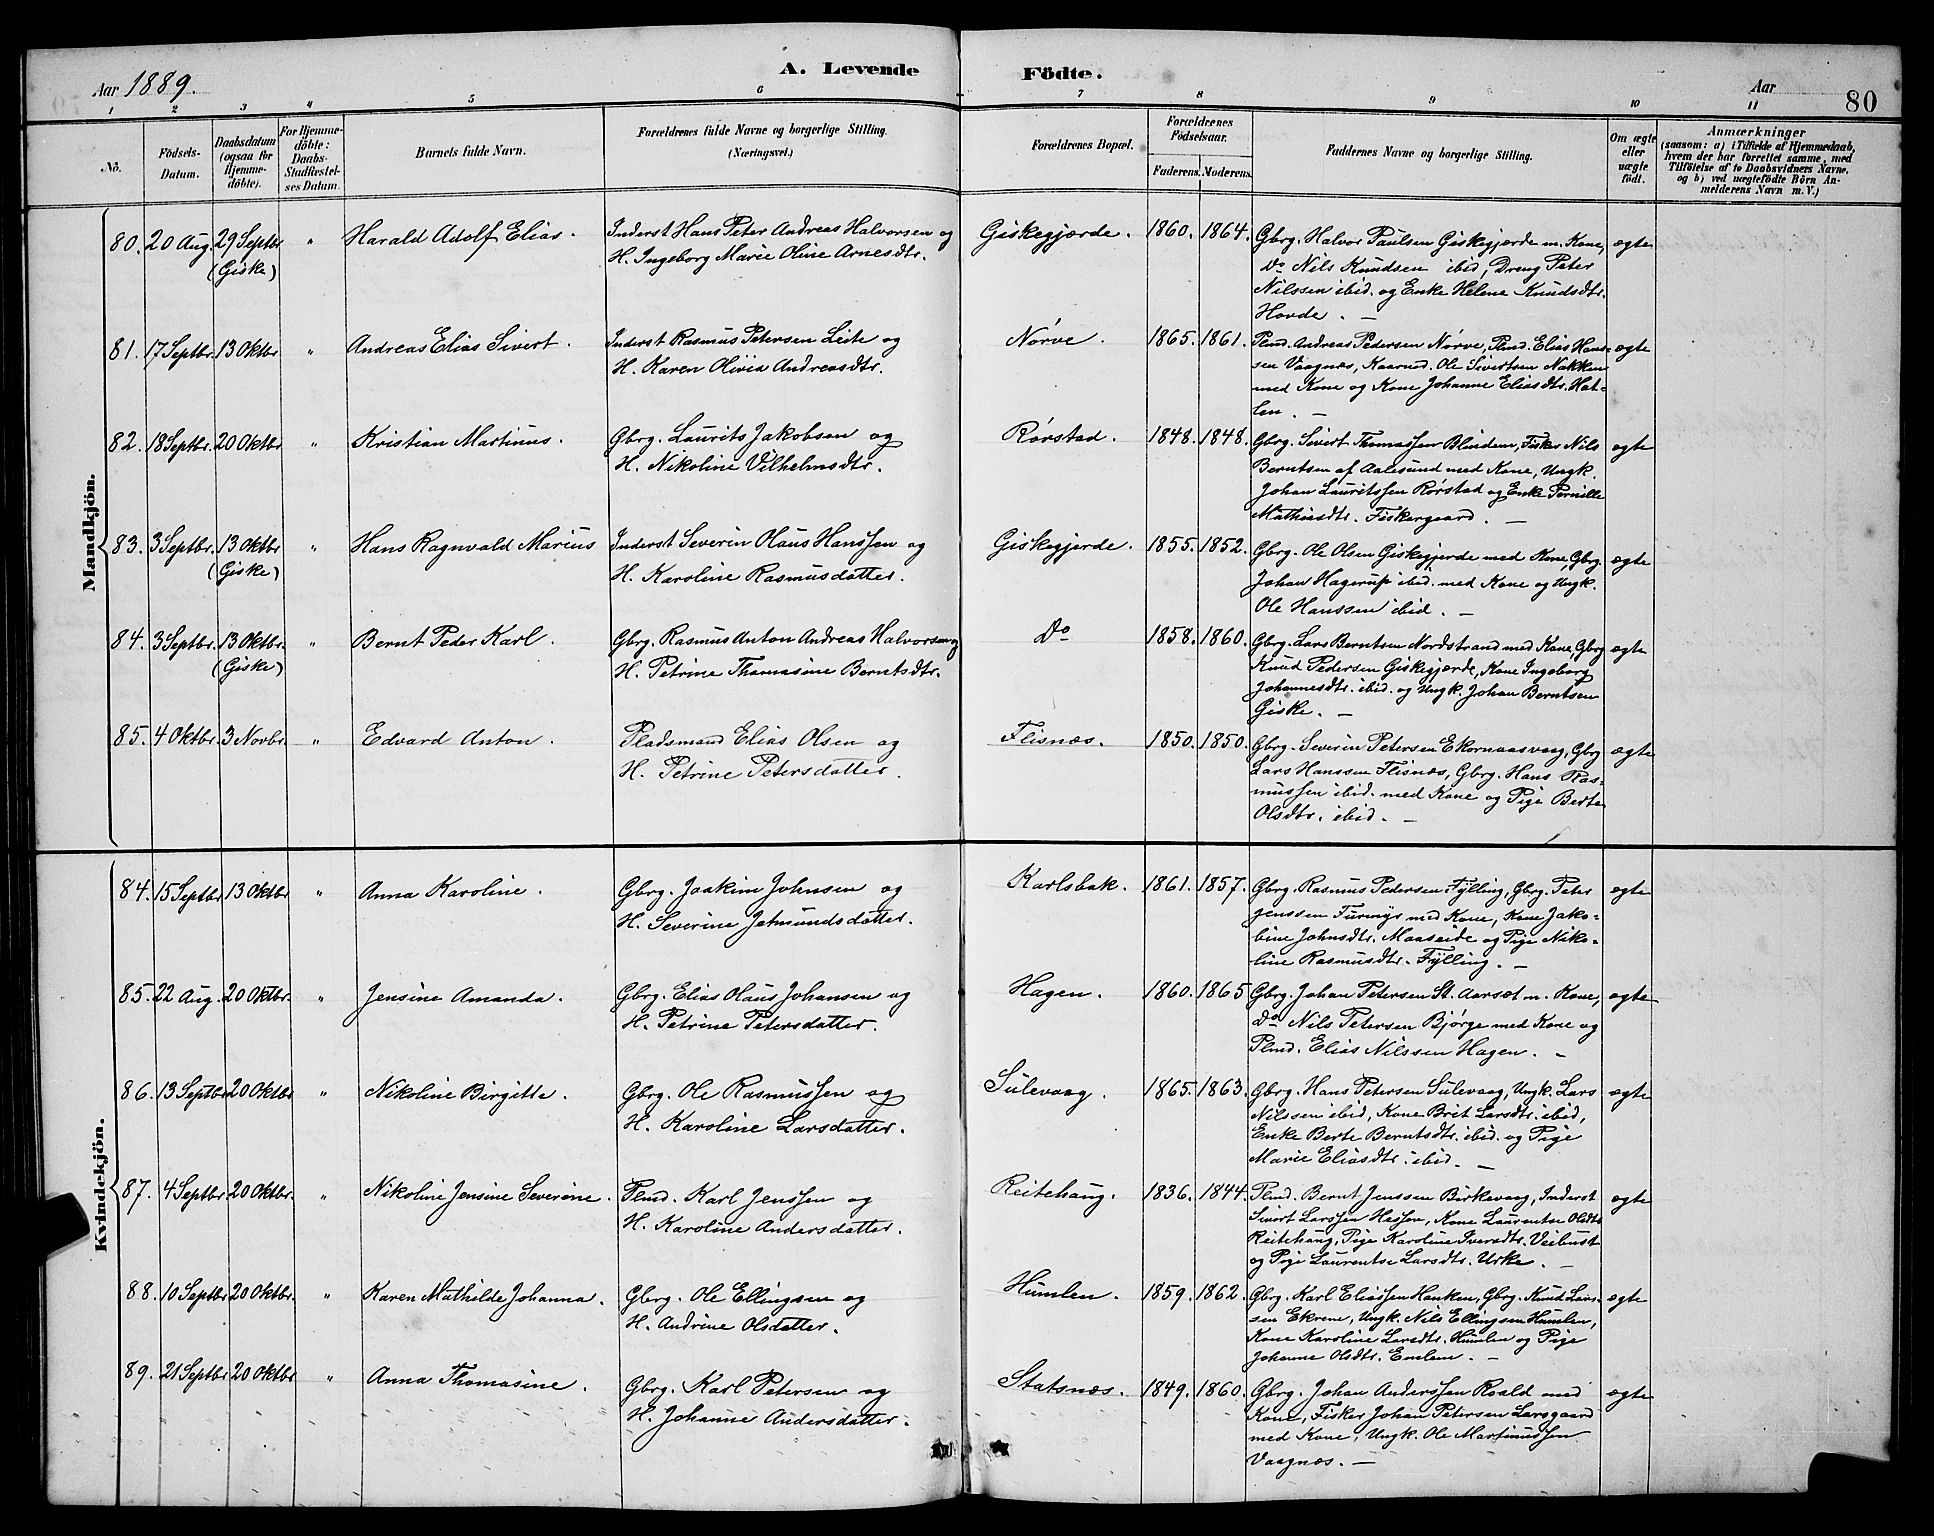 A. Levende Födte.
Aar 1889.
Aar
80
1 2 3 4 5 6 7 8 9 10 11
No.
Födsels-Datum.
Daabsdatum (ogsaa for Hjemmedöbte).
For Hjemmedöbte: Daabs-Stadfæstelses Datum.
Barnets fulde Navn.
Forældrenes fulde Navne og borgerlige Stilling.
(Næringsvei.)
Forældrenes Bopæl.
Forældrenes Födselsaar.
Faderens. Moderens.
Faddernes Navne og borgerlige Stilling.
Om ægte eller uægte födt.
Anmærkninger
(saasom: a) i Tilfælde af Hjemmedaab,
hvem der har forrettet samme, med
Tilföielse af to Daabsvidners Navne.
og b) ved uægtefödte Börn An-
melderens Navn m. V.)
Mandkjön.
80. 20 Aug. 29 Septbr (Giske) " Harald Adolf Elias. Inderst Hans Peter Andreas Halvorsen og
H. Ingeborg Marie Oline Arnesdtr. Giskegjærde. 1860. 1864. Gbrg. Halvor Paulsen Giskegjærde m. Kone, ægte
Do Nils Knudsen ibid, Dreng Peter
Nilssen ibid. og Enke Helene Knudsdtr.
Hovde. —
81. 17 Septbr. 13 Oktbr " Andreas Elias Sivert. Inderst Rasmus Petersen Leite og
H. Karen Olivia Andreasdtr. Nørve. 1865. 1861. Plmd. Andreas Pedersen Nørve, Plmd. Elias Hans- ægte
sen Vaagnæs, Kaarmd. Ole Sivertsen Nakken
med Kone og Kone Johanne Eliasdtr. Hat-
len. —
82. 18 Septbr. 20 Oktbr " Kristian Martinus. Gbrg. Laurits Jakobsen og
H. Nikoline Vilhelmsdtr. Rørstad. 1848. 1848. Gbrg. Sivert Thomassen Blindem, Fisker Nils ægte
Berntsen af Aalesund med Kone, Ungk.
Johan Lauritssen Rørstad og Enke Pernille
Mathiasdtr. Fiskergaard. —
83. 3 Septbr. 13 Oktbr (Giske) " Hans Ragnvald Marius Inderst Severin Olaus Hanssen og
H. Karoline Rasmusdatter. Giskegjerde. 1855. 1852. Gbrg. Ole Olsen Giskegjerde med Kone, Gbrg. ægte
Johan Hagerup ibid. med Kone og Ungk.
Ole Hanssen ibid. —
84. 3 Septbr. 13 Oktbr. (Giske) " Bernt Peder Karl. Gbrg. Rasmus Anton Andreas Halvorsen og
H. Petrine Thomasine Berntsdtr. Do 1858. 1860. Gbrg. Lars Berntsen Nordstrand med Kone, Gbrg ægte
Knud Pedersen Giskegjærde, Kone Ingeborg
Johannesdtr. ibid. og Ungk. Johan Berntsen
Giske. —
85. 4 Oktbr. 3 Novbr. " Edvard Anton. Pladsmand Elias Olsen og
H. Petrine Petersdatter. Flisnæs. 1850. 1850. Gbrg. Severin Petersen Ekornaasvaag, Gbrg ægte
Lars Hanssen Flisnæs, Gbrg. Hans Ras-
mussen ibid. med Kone og Pige Berte
Olsdtr. ibid. —
Kvindekjön.
84. 15 Septbr 13 Oktbr " Anna Karoline. Gbrg. Joakim Johnsen og
H. Severine Jetmundsdatter. Karlsbak. 1861. 1857. Gbrg. Rasmus Pedersen Fylling, Gbrg. Peter ægte
Jenssen Furmyr med Kone, Kone Jako-
bine Johnsdtr. Maaseide og Pige Niko-
line Rasmusdtr. Fylling. —
85. 22 Aug. 20 Oktbr. " Jensine Amanda. Gbrg. Elias Olaus Johansen og
H. Petrine Petersdatter. Hagen. 1860. 1865 Gbrg. Johan Petersen St. Aarsæt m. Kone, ægte
Do Nils Petersen Bjørge med Kone og
Plmd. Elias Nilssen Hagen. —
86. 13 Septbr 20 Oktbr " Nikoline Birgitte. Gbrg. Ole Rasmussen og
H. Karoline Larsdatter. Sulevaag. 1865. 1863. Gbrg. Hans Petersen Sulevaag, Ungk. Lars ægte
Nilssen ibid, Kone Brit Larsdtr. ibid,
Enke Berte Berntsdtr. ibid. og Pige
Marie Eliasdtr. ibid. —
87. 4 Septbr 20 Oktbr. " Nikoline Jensine Severine. Plmd. Karl Jenssen og
H. Karoline Andersdatter. Reitehaug. 1836. 1844. Plmd. Bernt Jenssen Birkevaag, Inderst ægte
Sivert Larssen Hessen, Kone Laurentse Olsdtr
Reitehaug, Pige Karoline Iversdtr. Veibust
og Pige Laurentse Larsdtr. Urke. —
88. 10 Septbr 20 Oktbr. " Karen Mathilde Johanna. Gbrg. Ole Ellingsen og
H. Andrine Olsdatter. Humlen. 1859. 1862. Gbrg. Karl Eliassen Hanken, Gbrg. Knud Lars- ægte
sen Ekrem, Ungk. Nils Ellingsen Humlen,
Kone Karoline Larsdtr. Humlen og Pige
Johanne Olsdtr. Emlem. —
89. 21 Septbr 20 Oktbr " Anna Thomasine. Gbrg. Karl Petersen og
H. Johanne Andersdatter. Statsnæs. 1849. 1860. Gbrg. Johan Anderssen Roald med ægte
Kone, Fisker Johan Petersen Larsgaard
med Kone, Ungk. Ole Martinussen
Vaagnæs. —